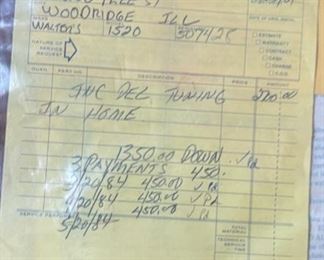 WOODRIDGE ILL
WALTOTS 1520 507428
NATURE OF
SERVICE
REQUEST
ESTIMATE
WARRANTY
CONTRACT
CASH
CHARGE
QUAN. PART NO. DESCRIPTION PRICE AMOUNT
INC DEL TUNING 270.00
IN HOME
1350.00 DOWN ✓Pd
3 PAYMENTS 450.
3/20/84 450.00 ✓Pd
4/20/84 450.00 ✓Pd
5/20/84 450.00 ✓Pd
SERVICE PERFORMED
TOTAL
MATERIAL
TECHNICAL
SERVICE
TIME